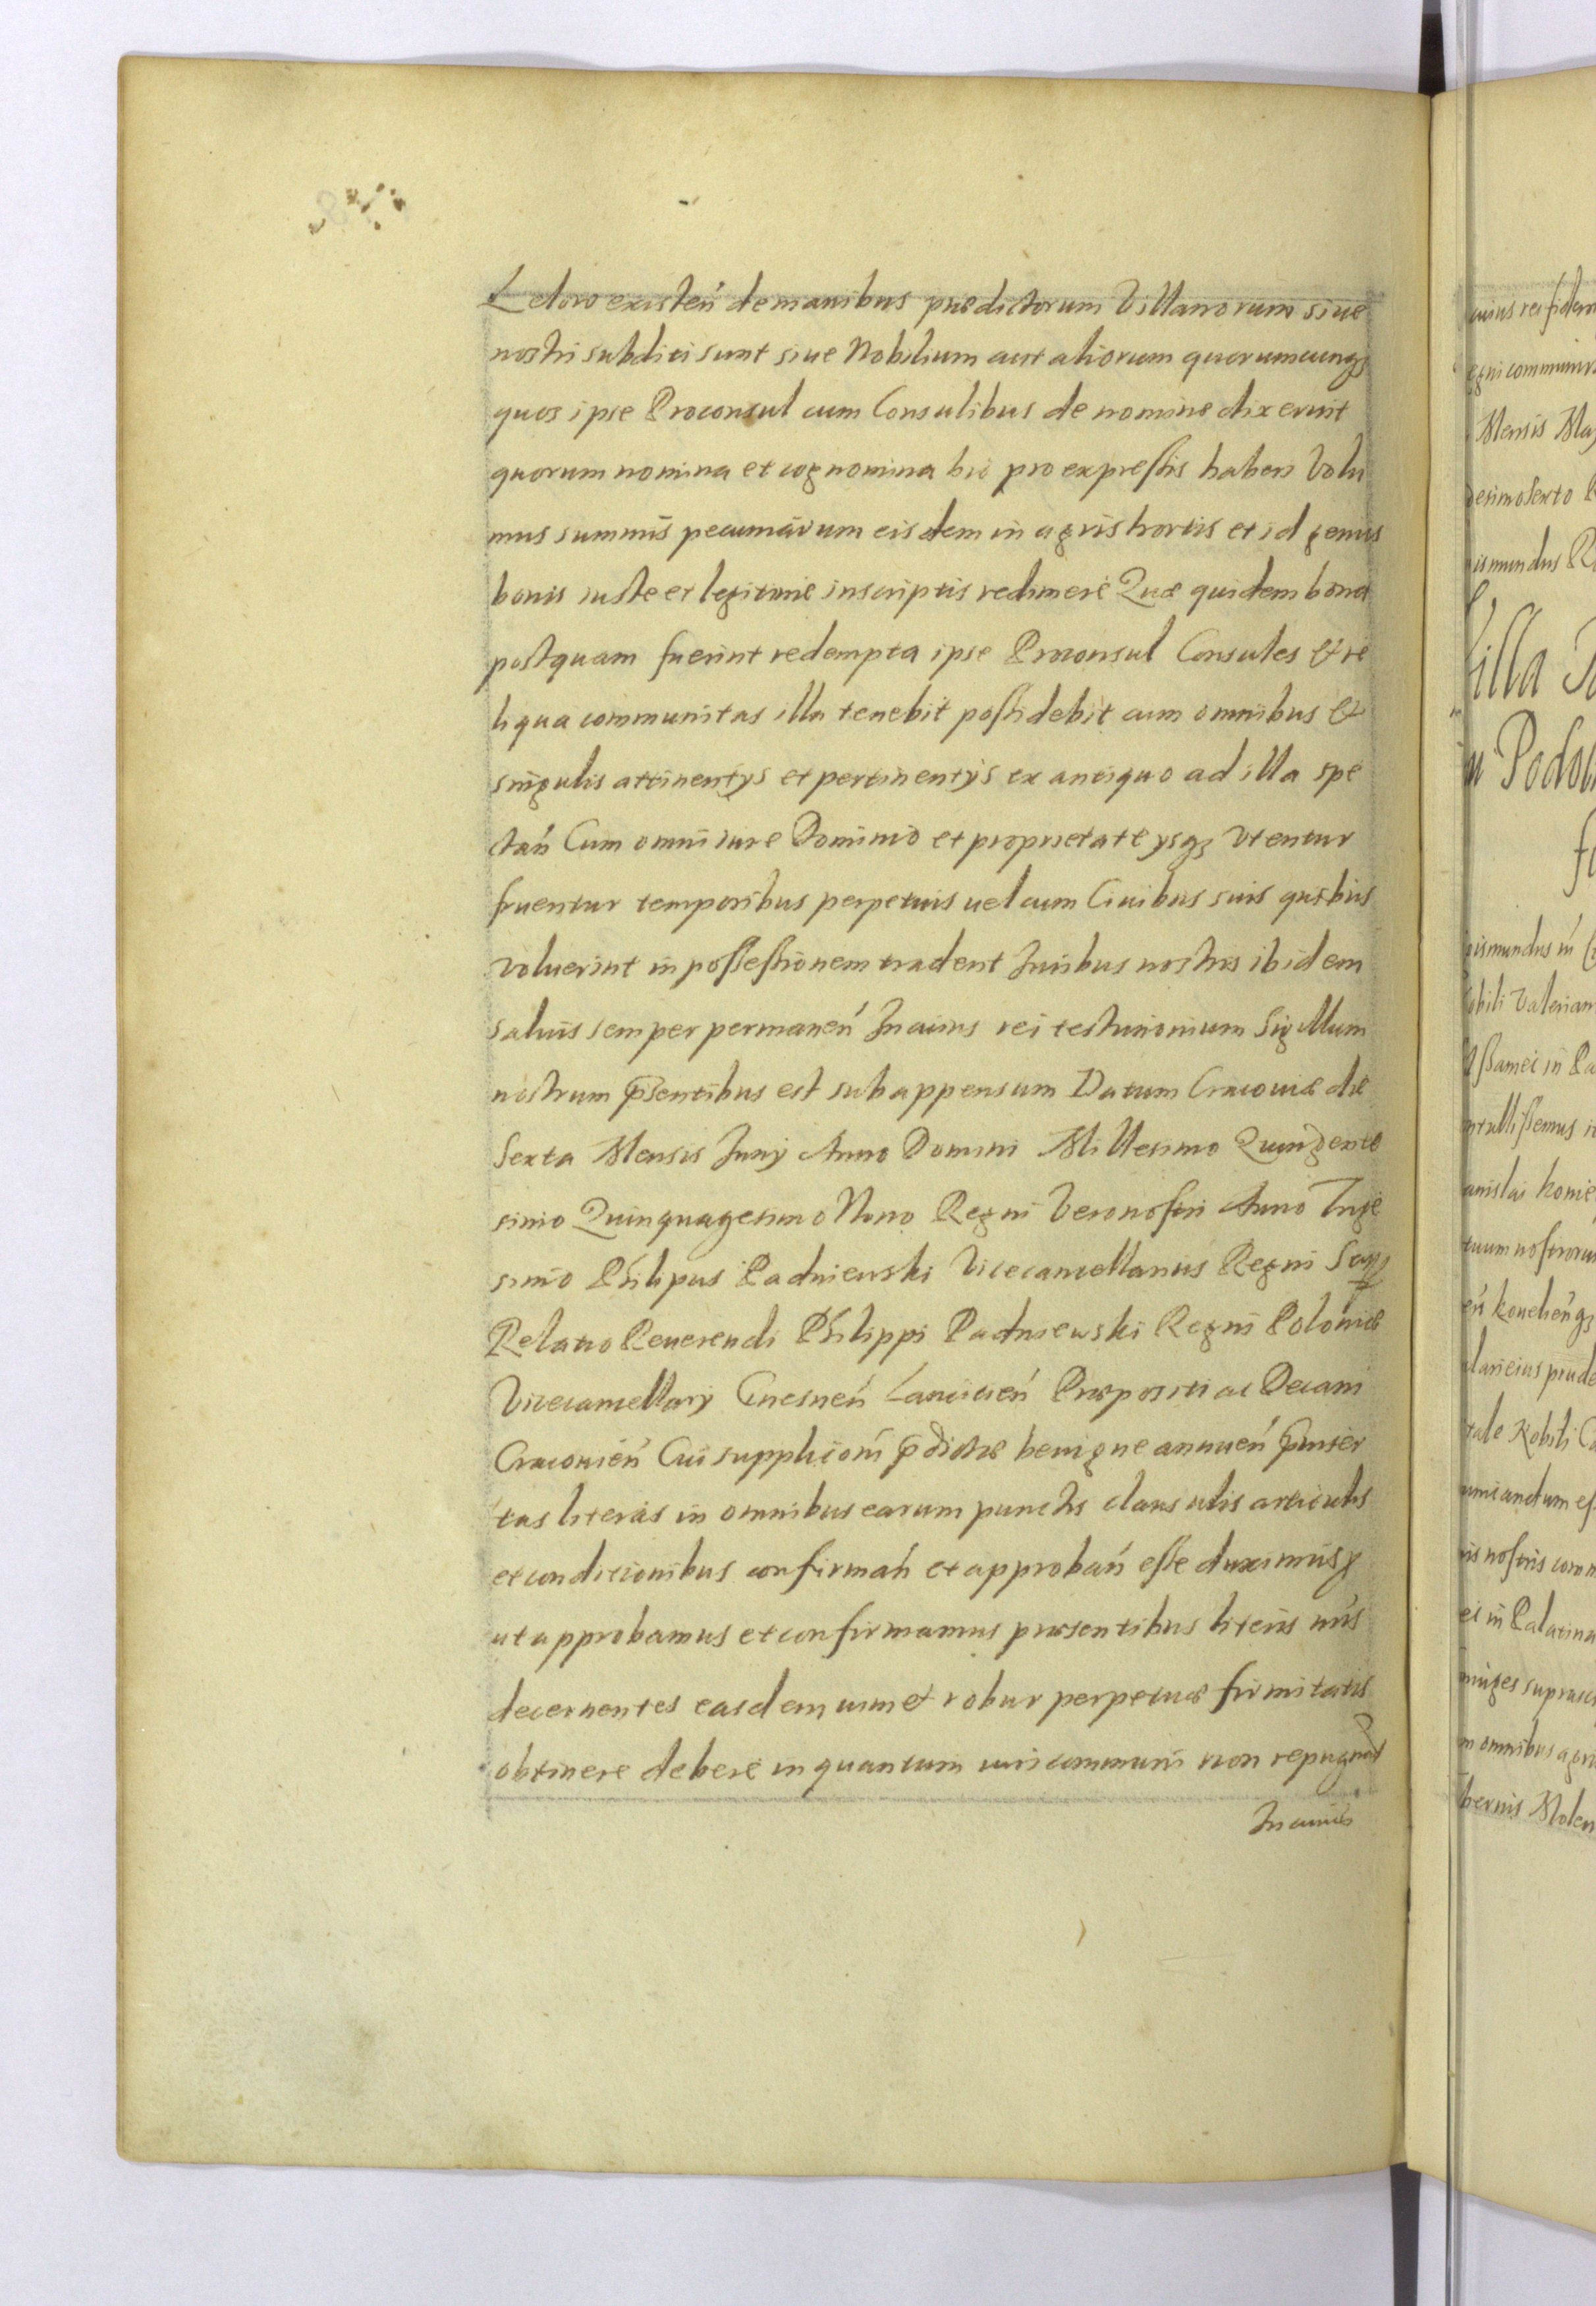 Ledoro existeń de manibus prædictorum Villanorum siue
nostri subditi sunt siue Nobilium aut aliorum quorumcunqȝ
quos ipse Proconsul cum Consulibus de nomine dixerint
quorum nomina et cognomina hic pro expressis haberi Volu
mus summis pecuniarum eisdem in agris hortis et id genus
bonis iuste et legitime inscriptis redimere Quæ quidem bona
postquam fuerint redempta ipse Proconsul Consules & re
liqua communitas illa tenebit possidebit cum omnibus &
singulis attinentys et pertinentys ex antiquo ad illa spe
ctań Cum omni iure Dominio et proprietate ysqȝ Vtentur
fruentur temporibus perpetuis uel cum Ciuibus suis quibus
voluerint in possessionem tradent Iuribus nostris ibidem
saluis semper permaneń In cuius rei testimonium Sigillum
nostrum p̄sentibus est subappensum Datum Cracouiæ die
Sexta Mensis Iuny Anno Domini Millesimo Quingente
simo Quinquagesimo Nono Regni Vero nostri Anno Trige
simo Philipus Padniewski Vicecancellarius Regni
Relatio Reuerendi Philippi Padniewski Regni Poloniæ
Vicecancellary Gnesneń Lancicień Præpositi ac Decani
Cracouień Cui supplicioni p̄dictæ benigne annueń p̄inser
tas literas in omnibus earum punctis clausulis articulis
et conditionibus confirmań et approbań esse duximus
ut approbamus et confirmamus præsentibus literis nr̄is
decernentes easdem uim et robur perpetuæ firmitatis
obtinere debere in quantum iuri communi non repugnat
In cuius
cuius rei fidem
egni communiri
Mensis May
desimosexto
ismundus
illa
Podol
ismundus in
obili Valerian
ssamei in Pa
anislai Konie
tuum nostrorum
lari eius prude
tale Nobili
umeandum es
is nostris comm
ei in Palatina
inges suprasc
n omnibus agri
bernis Molen